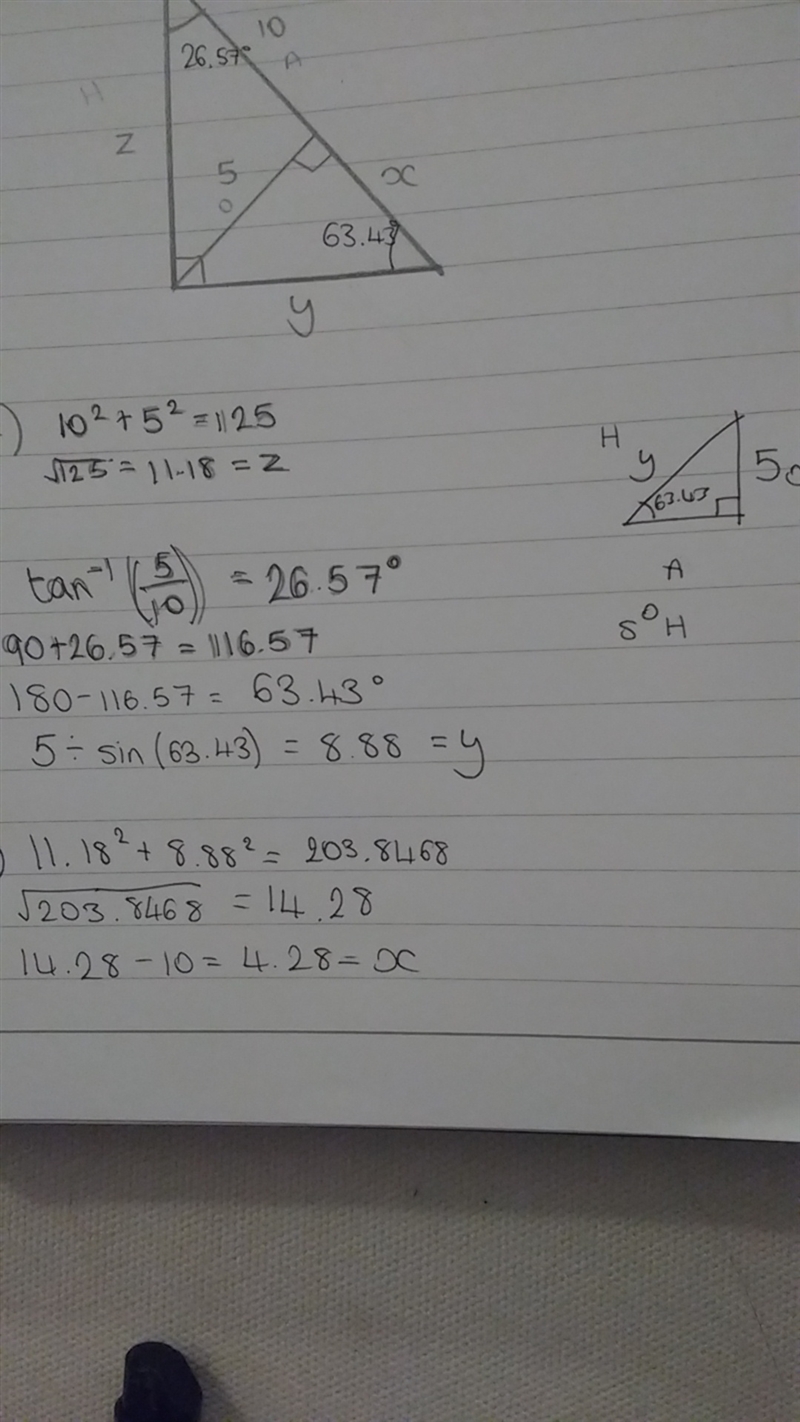 10
26.57°
A
H
z
5
O
x
63.43°
y
) 10² + 5² = 125
√125 = 11.18 = z
H
y
5
63.43
A
tan⁻¹ (5/10) = 26.57°
90 + 26.57 = 116.57
180 - 116.57 = 63.43°
5 ÷ sin(63.43) = 8.88 = y
) 11.18² + 8.88² = 203.8468
√203.8468 = 14.28
14.28 - 10 = 4.28 = x